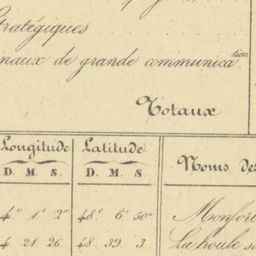 tratégiques
naux de grande communica^tion
Totaux
Longitude Latitude Noms des
D. M. S. D. M. S.
4° 1' 2" 48° 6' 50" Monfort
4 21 26 48 39 3 La houle s